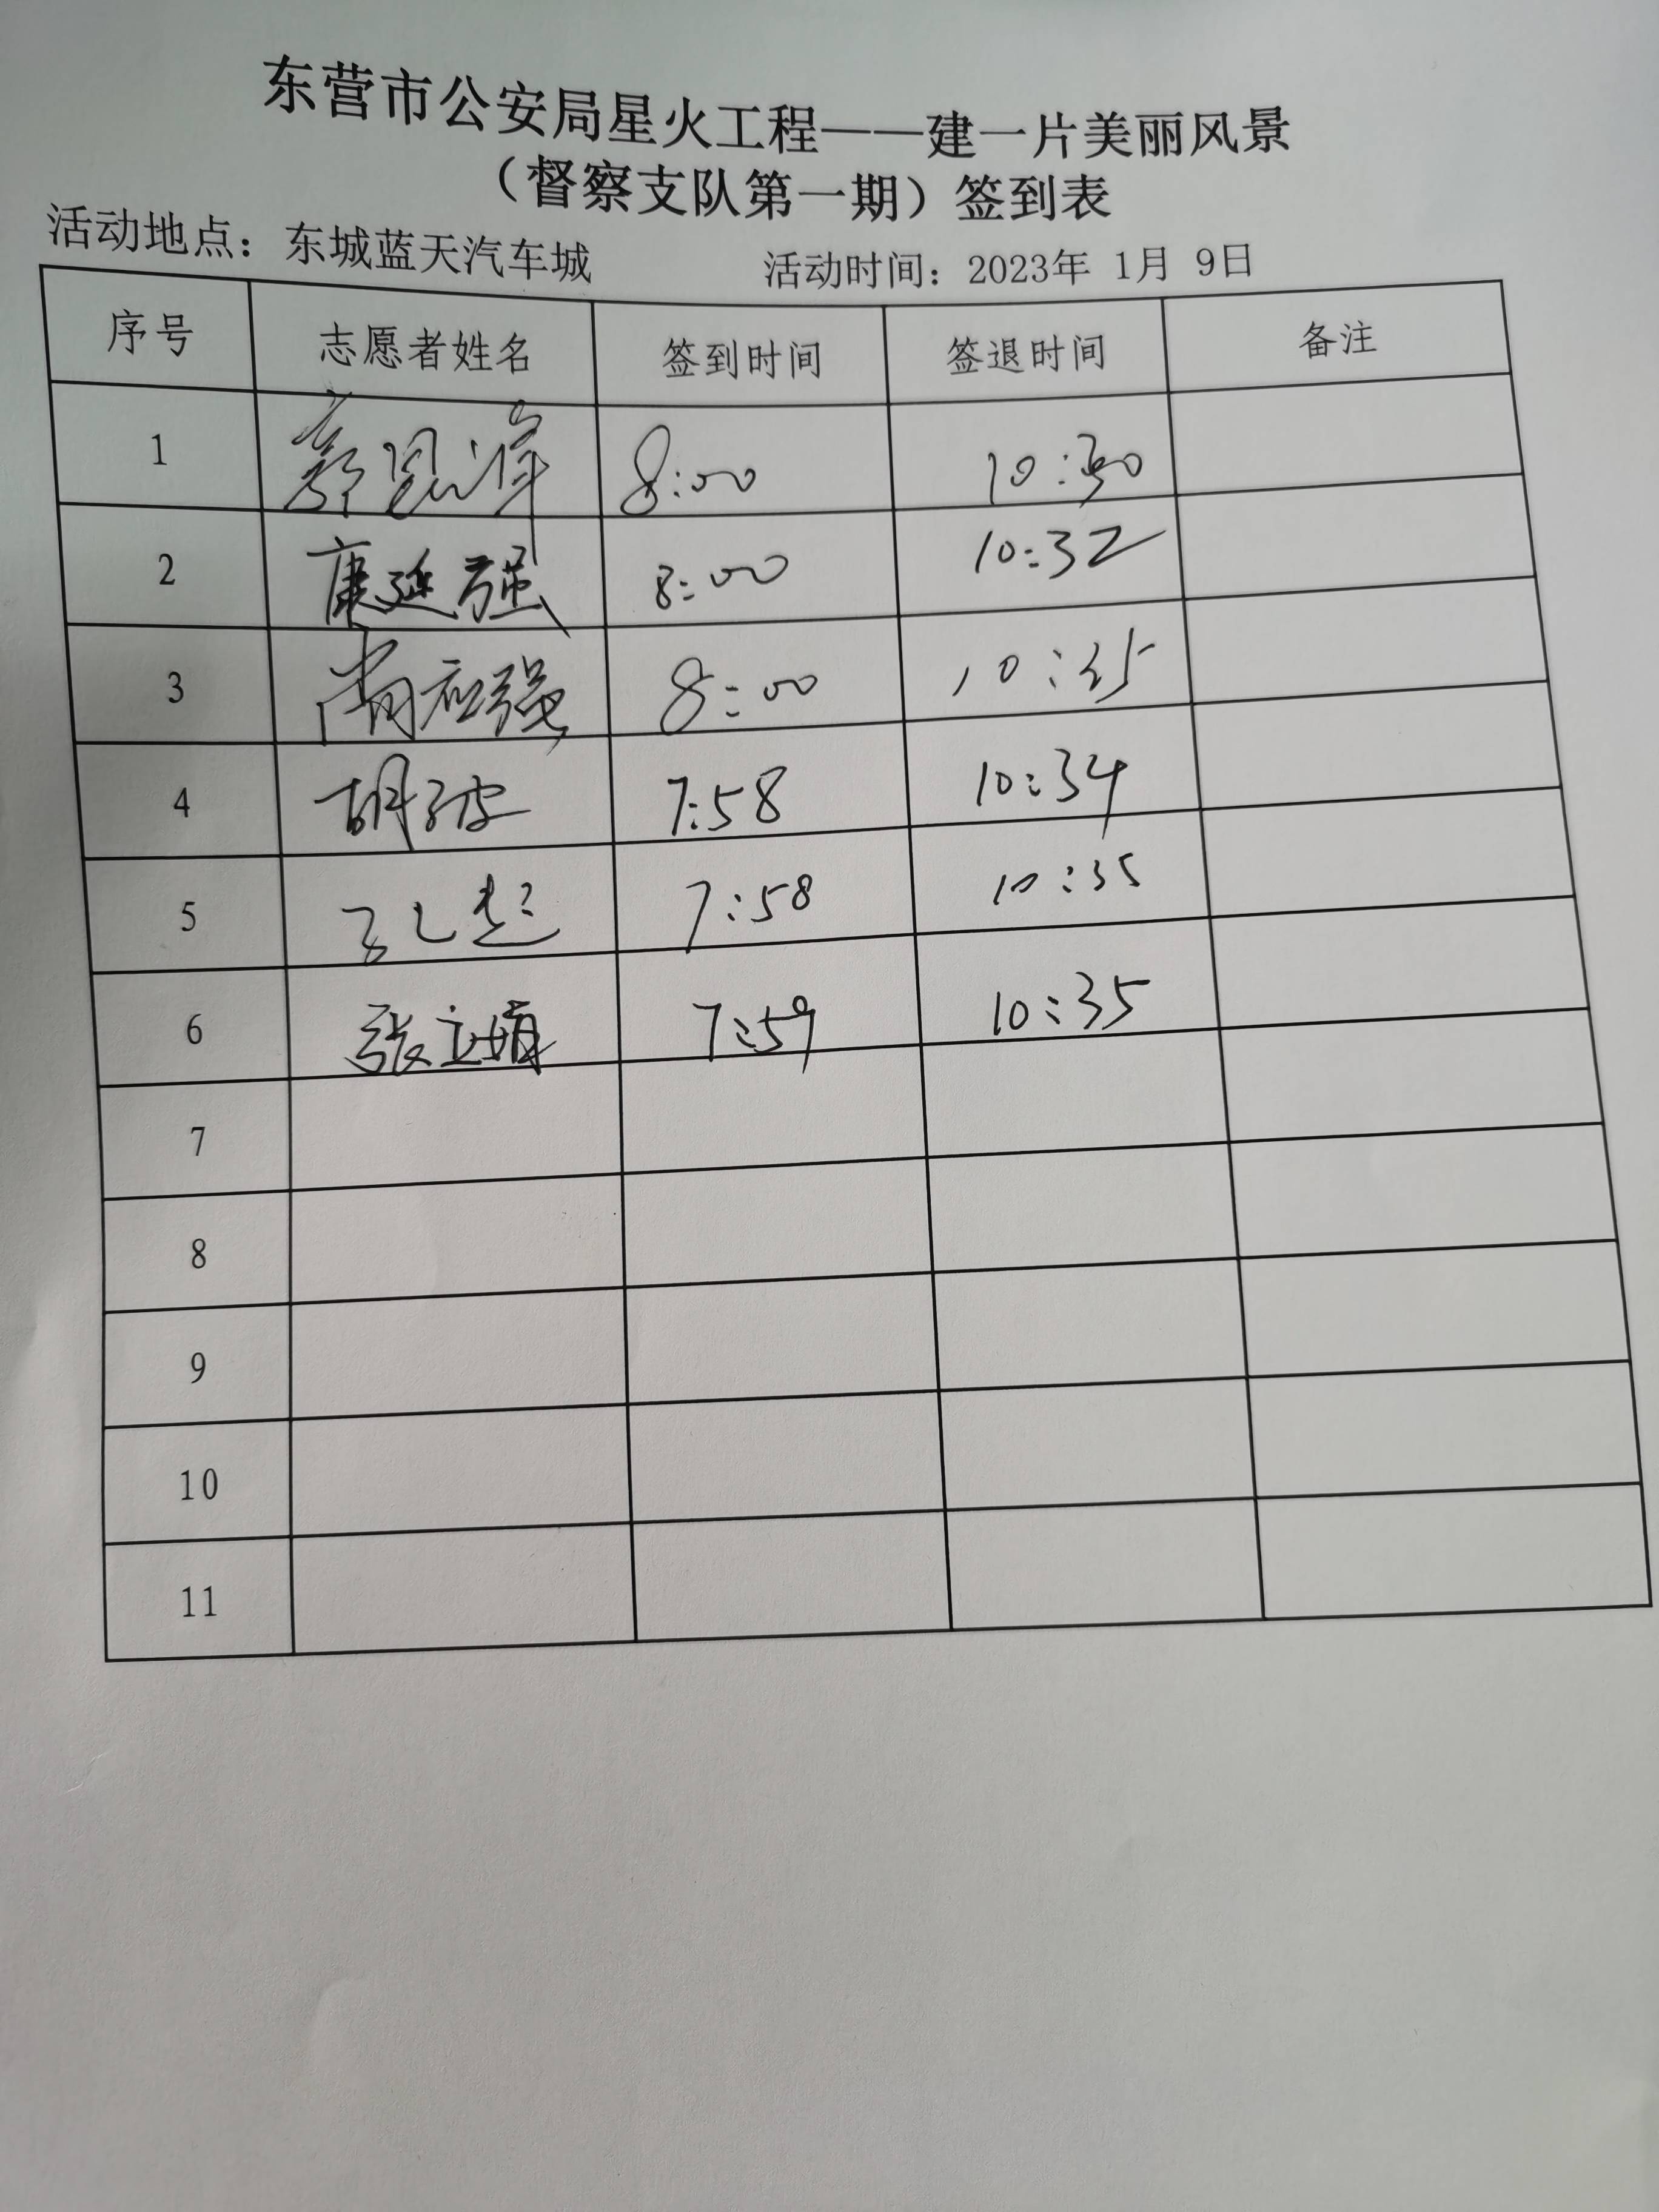 东营市公安局星火工程——建一片美丽风景
（督察支队第一期）签到表
活动地点：东城蓝天汽车城 活动时间：2023年 1月 9日
序号 志愿者姓名 签到时间 签退时间 备注
1 8:00 10:30
2 康延强 8:00 10:32
3 尚应强 8:00 10:35
4 胡子波 7:58 10:34
5 7:58 10:35
6 张立娟 7:59 10:35
7
8
9
10
11